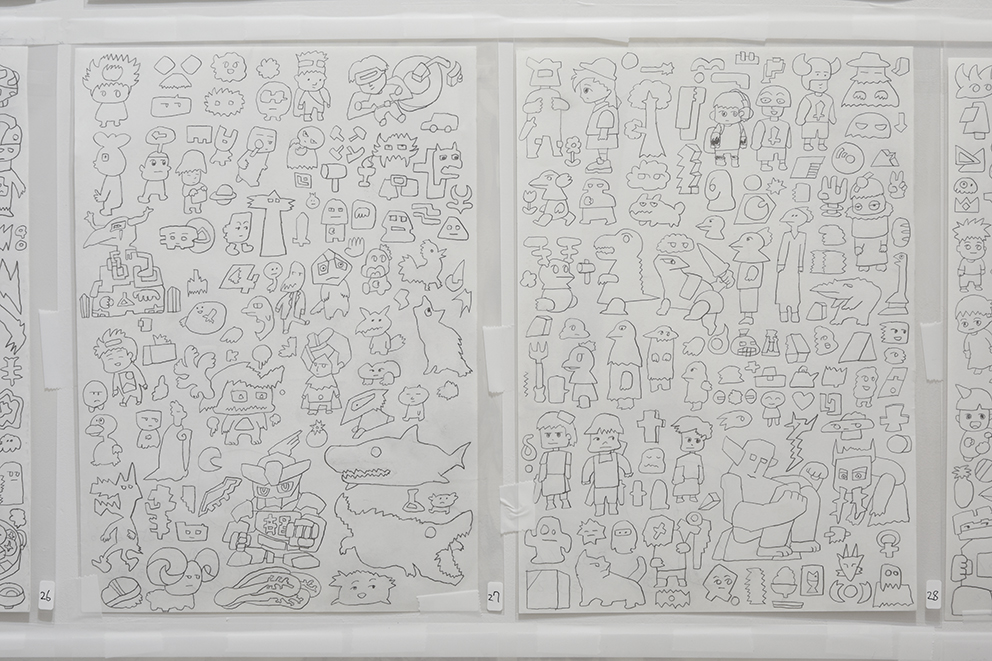 龍
26
27
28